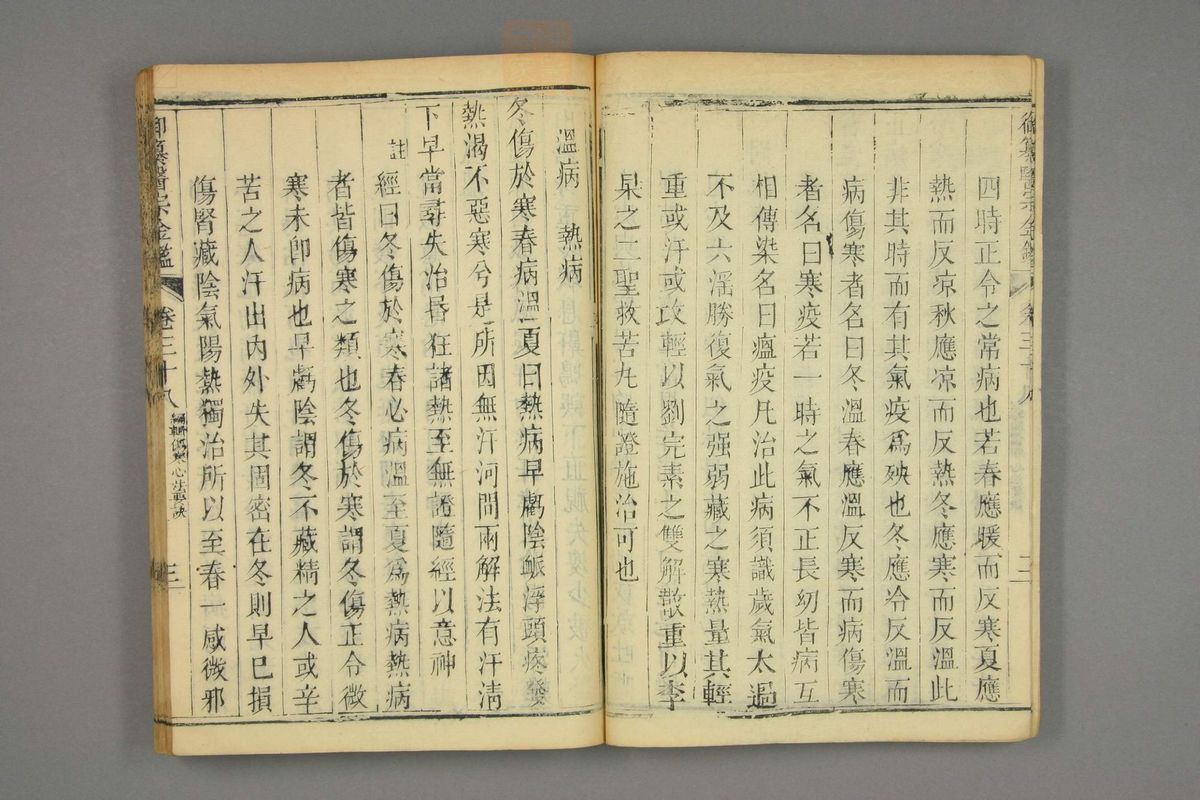 御纂醫宗金鑑
卷三十八
二
四時正令之常病也若春應暖而反寒夏應
熱而反凉秋應凉而反熱冬應寒而反溫此
非其時而有其氣疫爲殃也冬應冷反溫而
病傷寒者名曰冬溫春應溫反寒而病傷寒
者名曰寒疫若一時之氣不正長幼皆病互
相傳染名曰瘟疫凡治此病須識歲氣太過
不及六淫勝復氣之强弱藏之寒熱量其輕
重或汗或攻輕以劉完素之雙解散重以李
杲之二聖救苦丸隨證施治可也
溫病 熱病
冬傷於寒春病溫夏曰熱病早虧陰脈浮頭疼發
熱渴不惡寒兮是所因無汗河間兩解法有汗淸
下早當尋失治昬狂諸熱至無證隨經以意神
註
經曰冬傷於寒春必病溫至夏爲熱病熱病
者皆傷寒之類也冬傷於寒謂冬傷正令微
寒未卽病也早虧陰謂冬不藏精之人或辛
苦之人汗出內外失其固密在冬則早已損
傷腎藏陰氣陽熱獨治所以至春一感微邪
御纂醫宗金鑑
卷三十八
編輯傷寒心法要訣
三